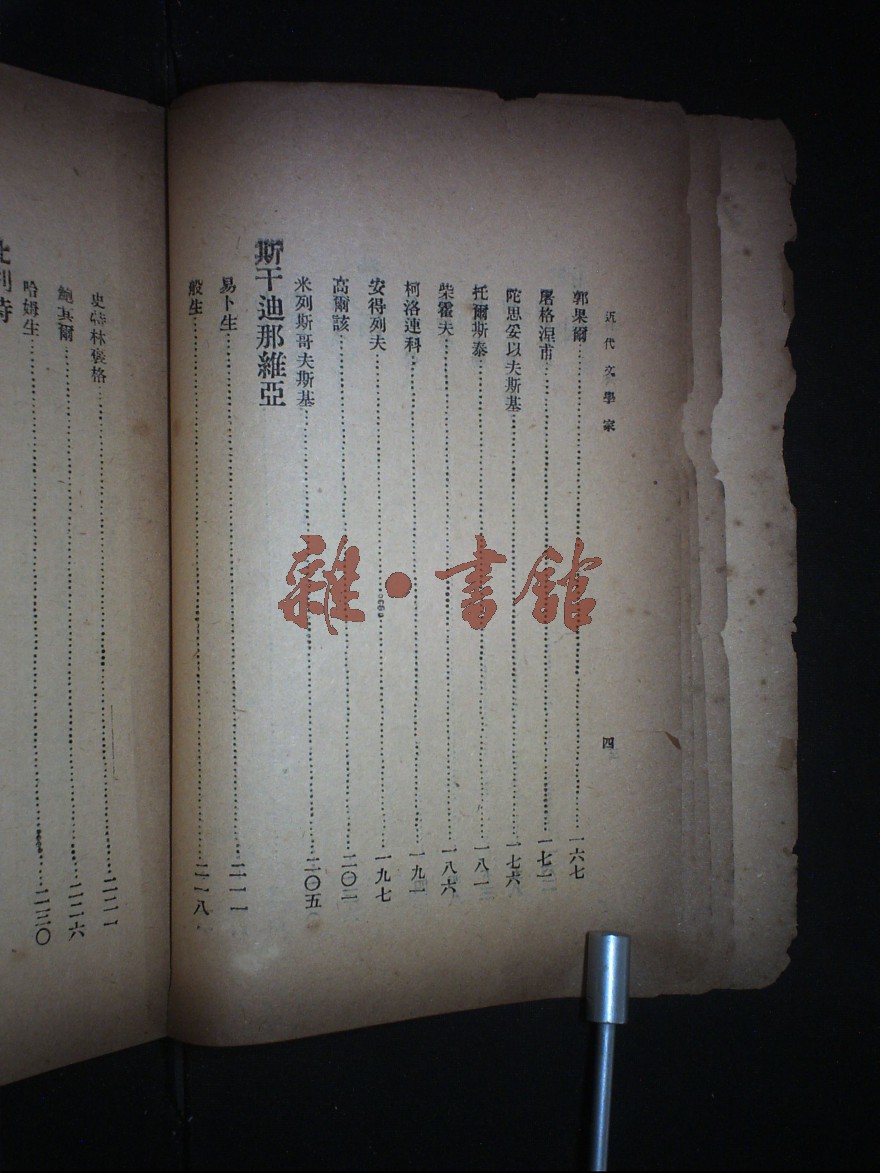 近代文學家
四
郭果爾……一六七
屠格涅甫……一七一
陀思妥以夫斯基……一七六
托爾斯泰……一八一
柴霍夫……一八六
柯洛連科……一九一
安得列夫……一九七
高爾該……二〇二
米列斯哥夫斯基……二〇五
斯干迪那維亞
易卜生……二一一
般生……二一八
史特林褒格……二二一
鮑其爾……二二六
哈姆生……二三〇
雜·書館